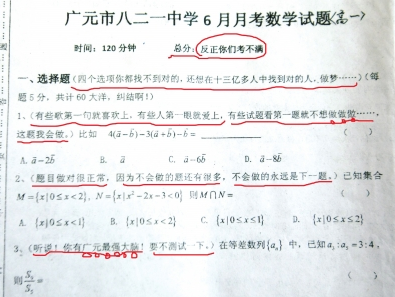 广元市八二一中学6月月考数学试题(高一)
时间：120分钟 总分：反正你们考不满
一、选择题（四个选项你都找不到对的，还想在十三亿多人中找到对的人，做梦……）（每
题5分，共计60大洋，纠结啊！）
1、（有些歌第一句就喜欢上，有些人第一眼就爱上，有些试题看第一题就不想做做做……，
这题我会做。）比如 4(a⃗-b⃗)-3(a⃗+b⃗)-b⃗= （ ）
A. a⃗-2b⃗ B. a⃗ C. a⃗-6b⃗ D. a⃗-8b⃗
2、（题目做对很正常，因为不会做的题还有很多，不会做的永远是下一题。）已知集合
M={x|0≤x<2}，N={x|x²-2x-3<0} 则M∩N= （ ）
A. {x|0≤x<1} B. {x|0≤x<2} C. {x|0≤x≤1} D. {x|0≤x≤2}
3、（听说！你有广元最强大脑！要不测试一下。）在等差数列{aₙ} 中，已知a₃:a₅=3:4，
则S₅/S₉= （ ）